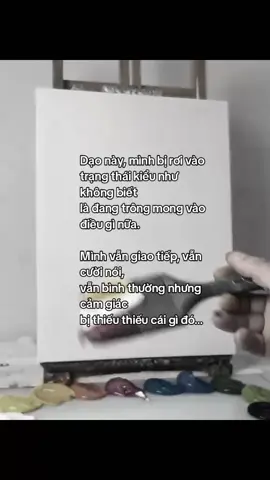 Dạo này, mình bị rơi vào
trạng thái kiểu như
không biết
là đang trông mong vào
điều gì nữa.
Mình vẫn giao tiếp, vẫn
cười nói,
vẫn bình thường nhưng
cảm giác
bị thiếu thiếu cái gì đó...